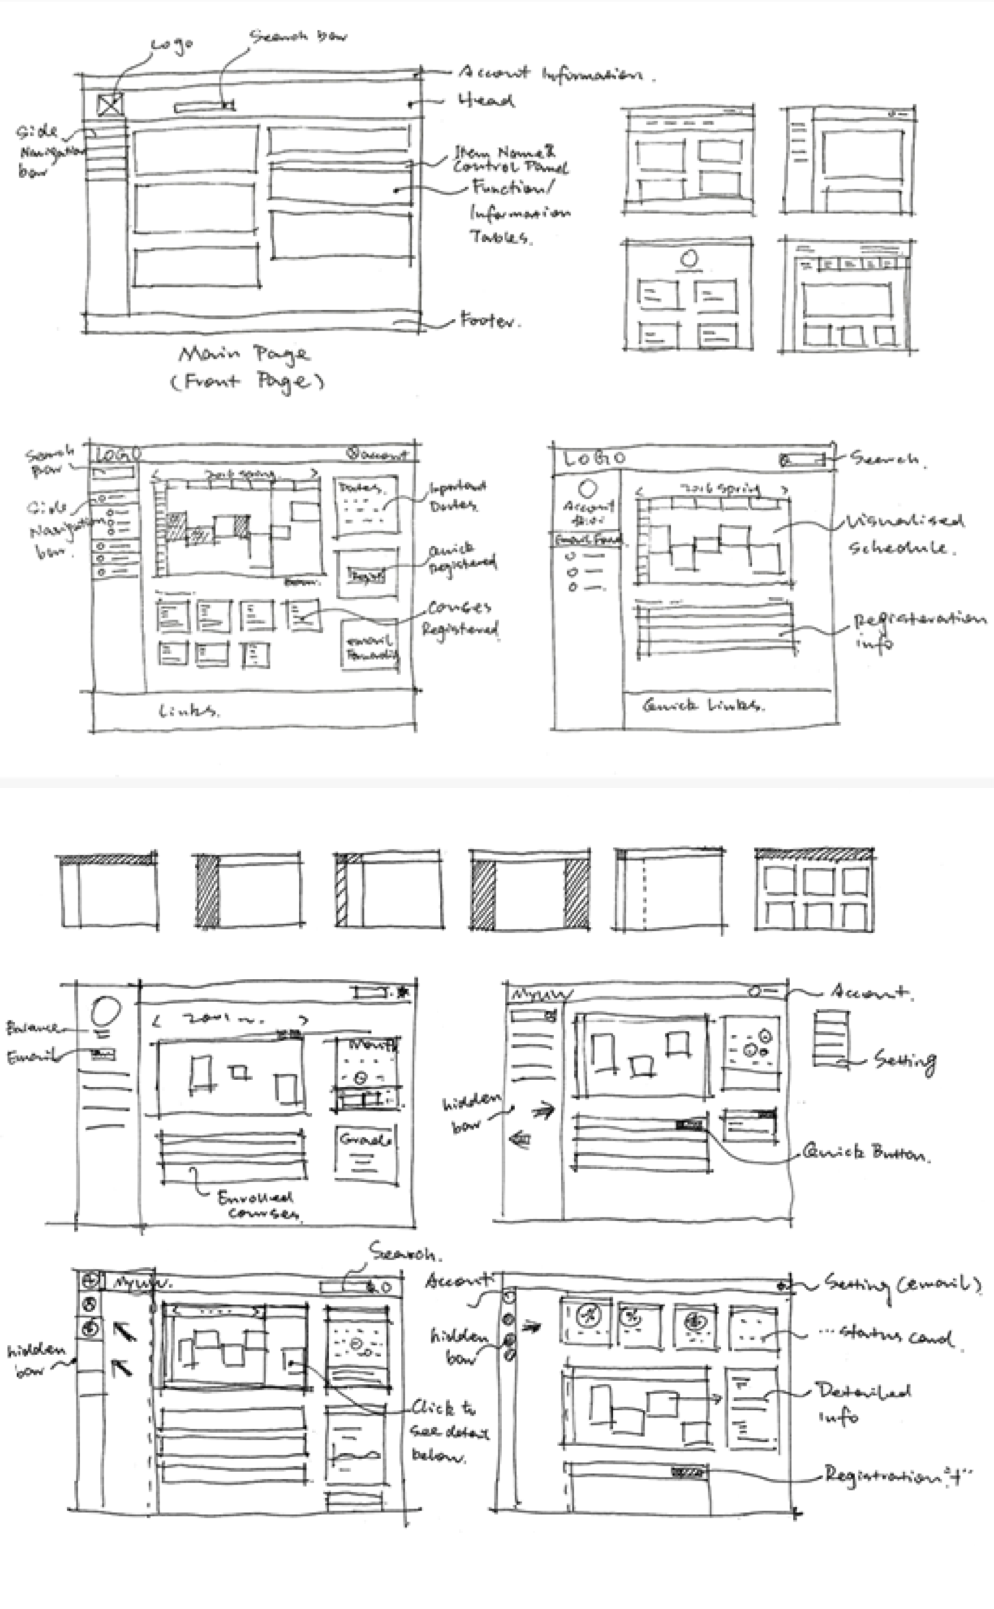 Logo
Search bar
Account Information.
Head
Side
Navigation
bar
Item Name &
Control Panel
Function/
Information
Tables.
Footer.
Main Page
(Front Page)
Search
Bar
LOGO
account
2016 spring.
Side
Navigation
bar.
Dates.
Important
Dates.
Quick
Registered
Courses
Registered.
Email
Links.
LOGO
Search.
Account
2016 spring
Visualised
schedule.
Registeration
info
Quick Links.
Balance
Email
Month
Grade
Enrolled
courses.
MyUW
Account.
Setting
hidden
bar
Quick Button.
Search.
MyUW.
hidden
bar
Click to
see detail
below.
Account
hidden
bar
Setting (email)
...status card
Detailed
Info
Registration "+"